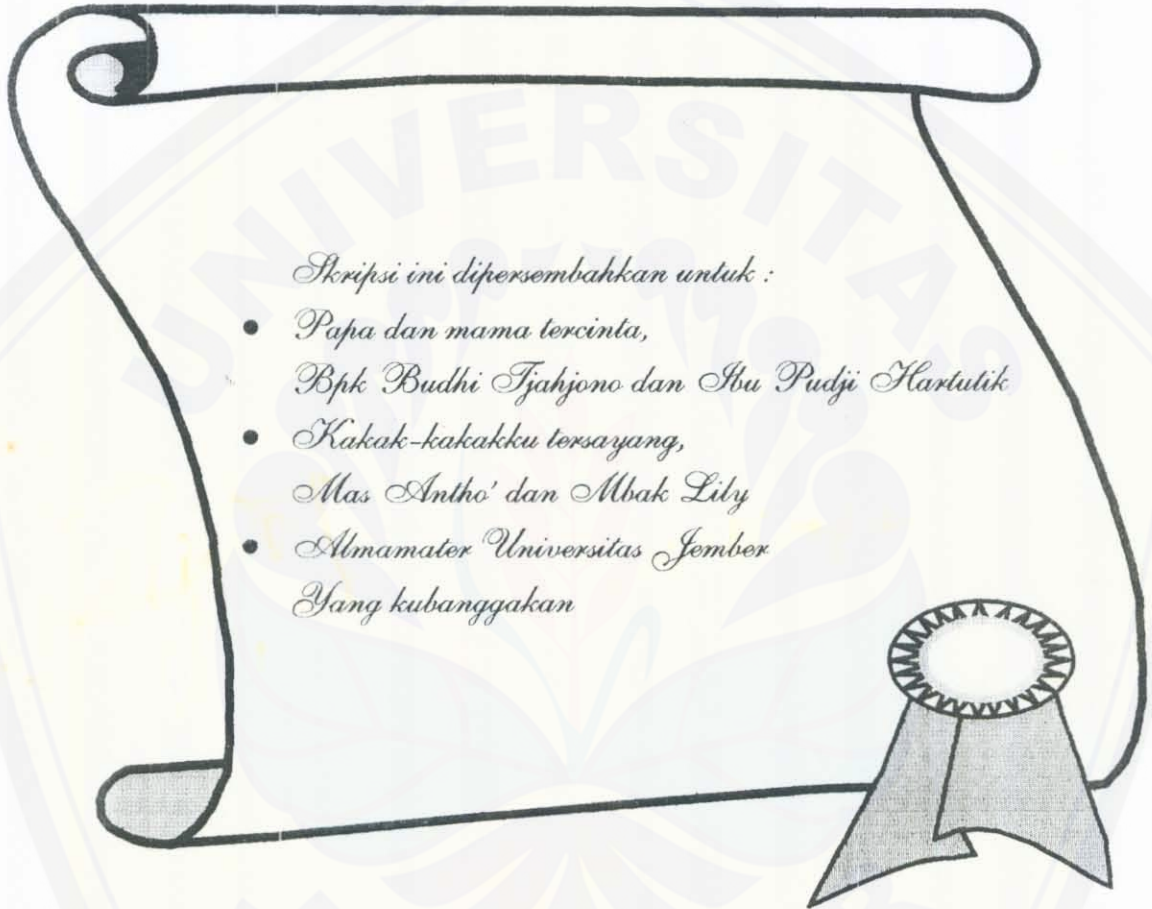 UNIVERSITAS
Skripsi ini dipersembahkan untuk :
• Papa dan mama tercinta,
Bpk Budhi Tjahjono dan Ibu Pudji Hartutik
• Kakak-kakakku tersayang,
Mas Antho' dan Mbak Lily
• Almamater Universitas Jember
Yang kubanggakan